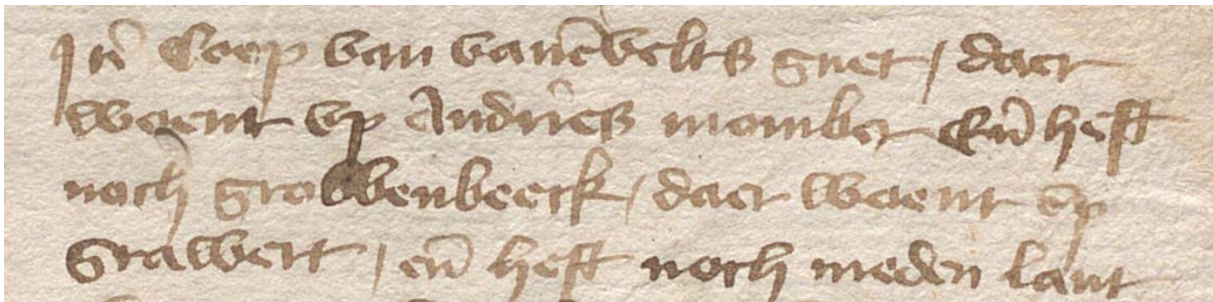 It̄ Coep van vanēvelts guet / daer
woent vp Andrīes momber Eñ heft
noch grobbenbeeck / daer woent op
Stawert / eñ heft noch meden lant